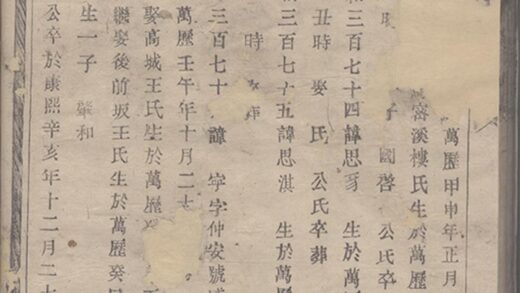 萬歷甲申年正月
窖溪樓氏生於萬歷
子 國啓 公氏卒
三百七十四諱思 生於萬
丑時娶 氏 公氏卒葬
三百七十五諱思淇 生於萬
時
三百七十 諱 字仲安號
萬歷壬午年十月二
娶高城王氏生於萬歷
繼娶後前坂王氏生於萬歷癸
生一子 肇和
公卒於康熙辛亥年十二月二